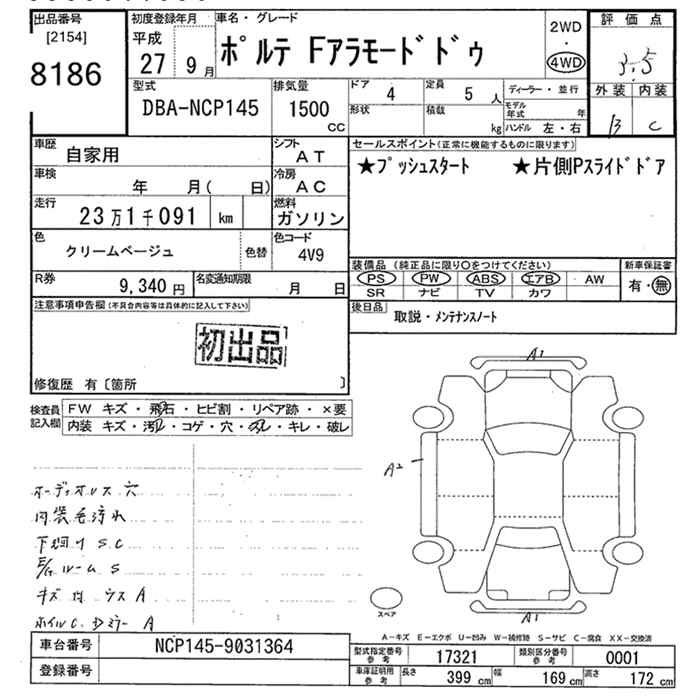 出品番号 初度登録年月 車名・グレード 2WD 評価点
[2154] 平成 ・ 3.5
8186 27 9月 ポルテ Fアラモードドドゥ 4WD 外装 内装
型式 排気量 ドア 定員 ディーラー・並行 B C
DBA-NCP145 1500 CC 4 5人 モデル年式 年
形状 積載 kg ハンドル 左・右
車歴 自家用 シフト AT セールスポイント(正常に機能するものに限ります)
車検 年 月( 日) 冷房 AC ★プッシュスタート ★片側Pスライドドア
走行 23万1千091 km 燃料 ガソリン
色 クリームベージュ 色替 色コード 4V9
装備品(純正品に限り○をつけてください) 新車保証書
R券 9,340円 名変通知期限 月 日 PS PW ABS エアB AW 有・無
SR ナビ TV カワ
注意事項申告欄(不具合内容等は具体的に記入して下さい) 後日品 取説・メンテナンスノート
初出品
修復歴 有〔箇所 〕
検査員記入欄 FW キズ・飛石・ヒビ割・リペア跡・×要
内装 キズ・汚れ・コゲ・穴・スレ・キレ・破レ
A1
A2
オーディオレス穴
内装毛汚れ
下廻り S C
E/Gルーム S
キズ 凹 ウス A
ホイルC. Dミラー A
スペア
A1
A-キズ E-エクボ U-凹み W-補修跡 S-サビ C-腐食 XX-交換済
車台番号 NCP145-9031364 型式指定番号 参考 17321 類別区分番号 参考 0001
登録番号 車庫証明用 参考 長さ 399 cm 幅 169 cm 高さ 172 cm